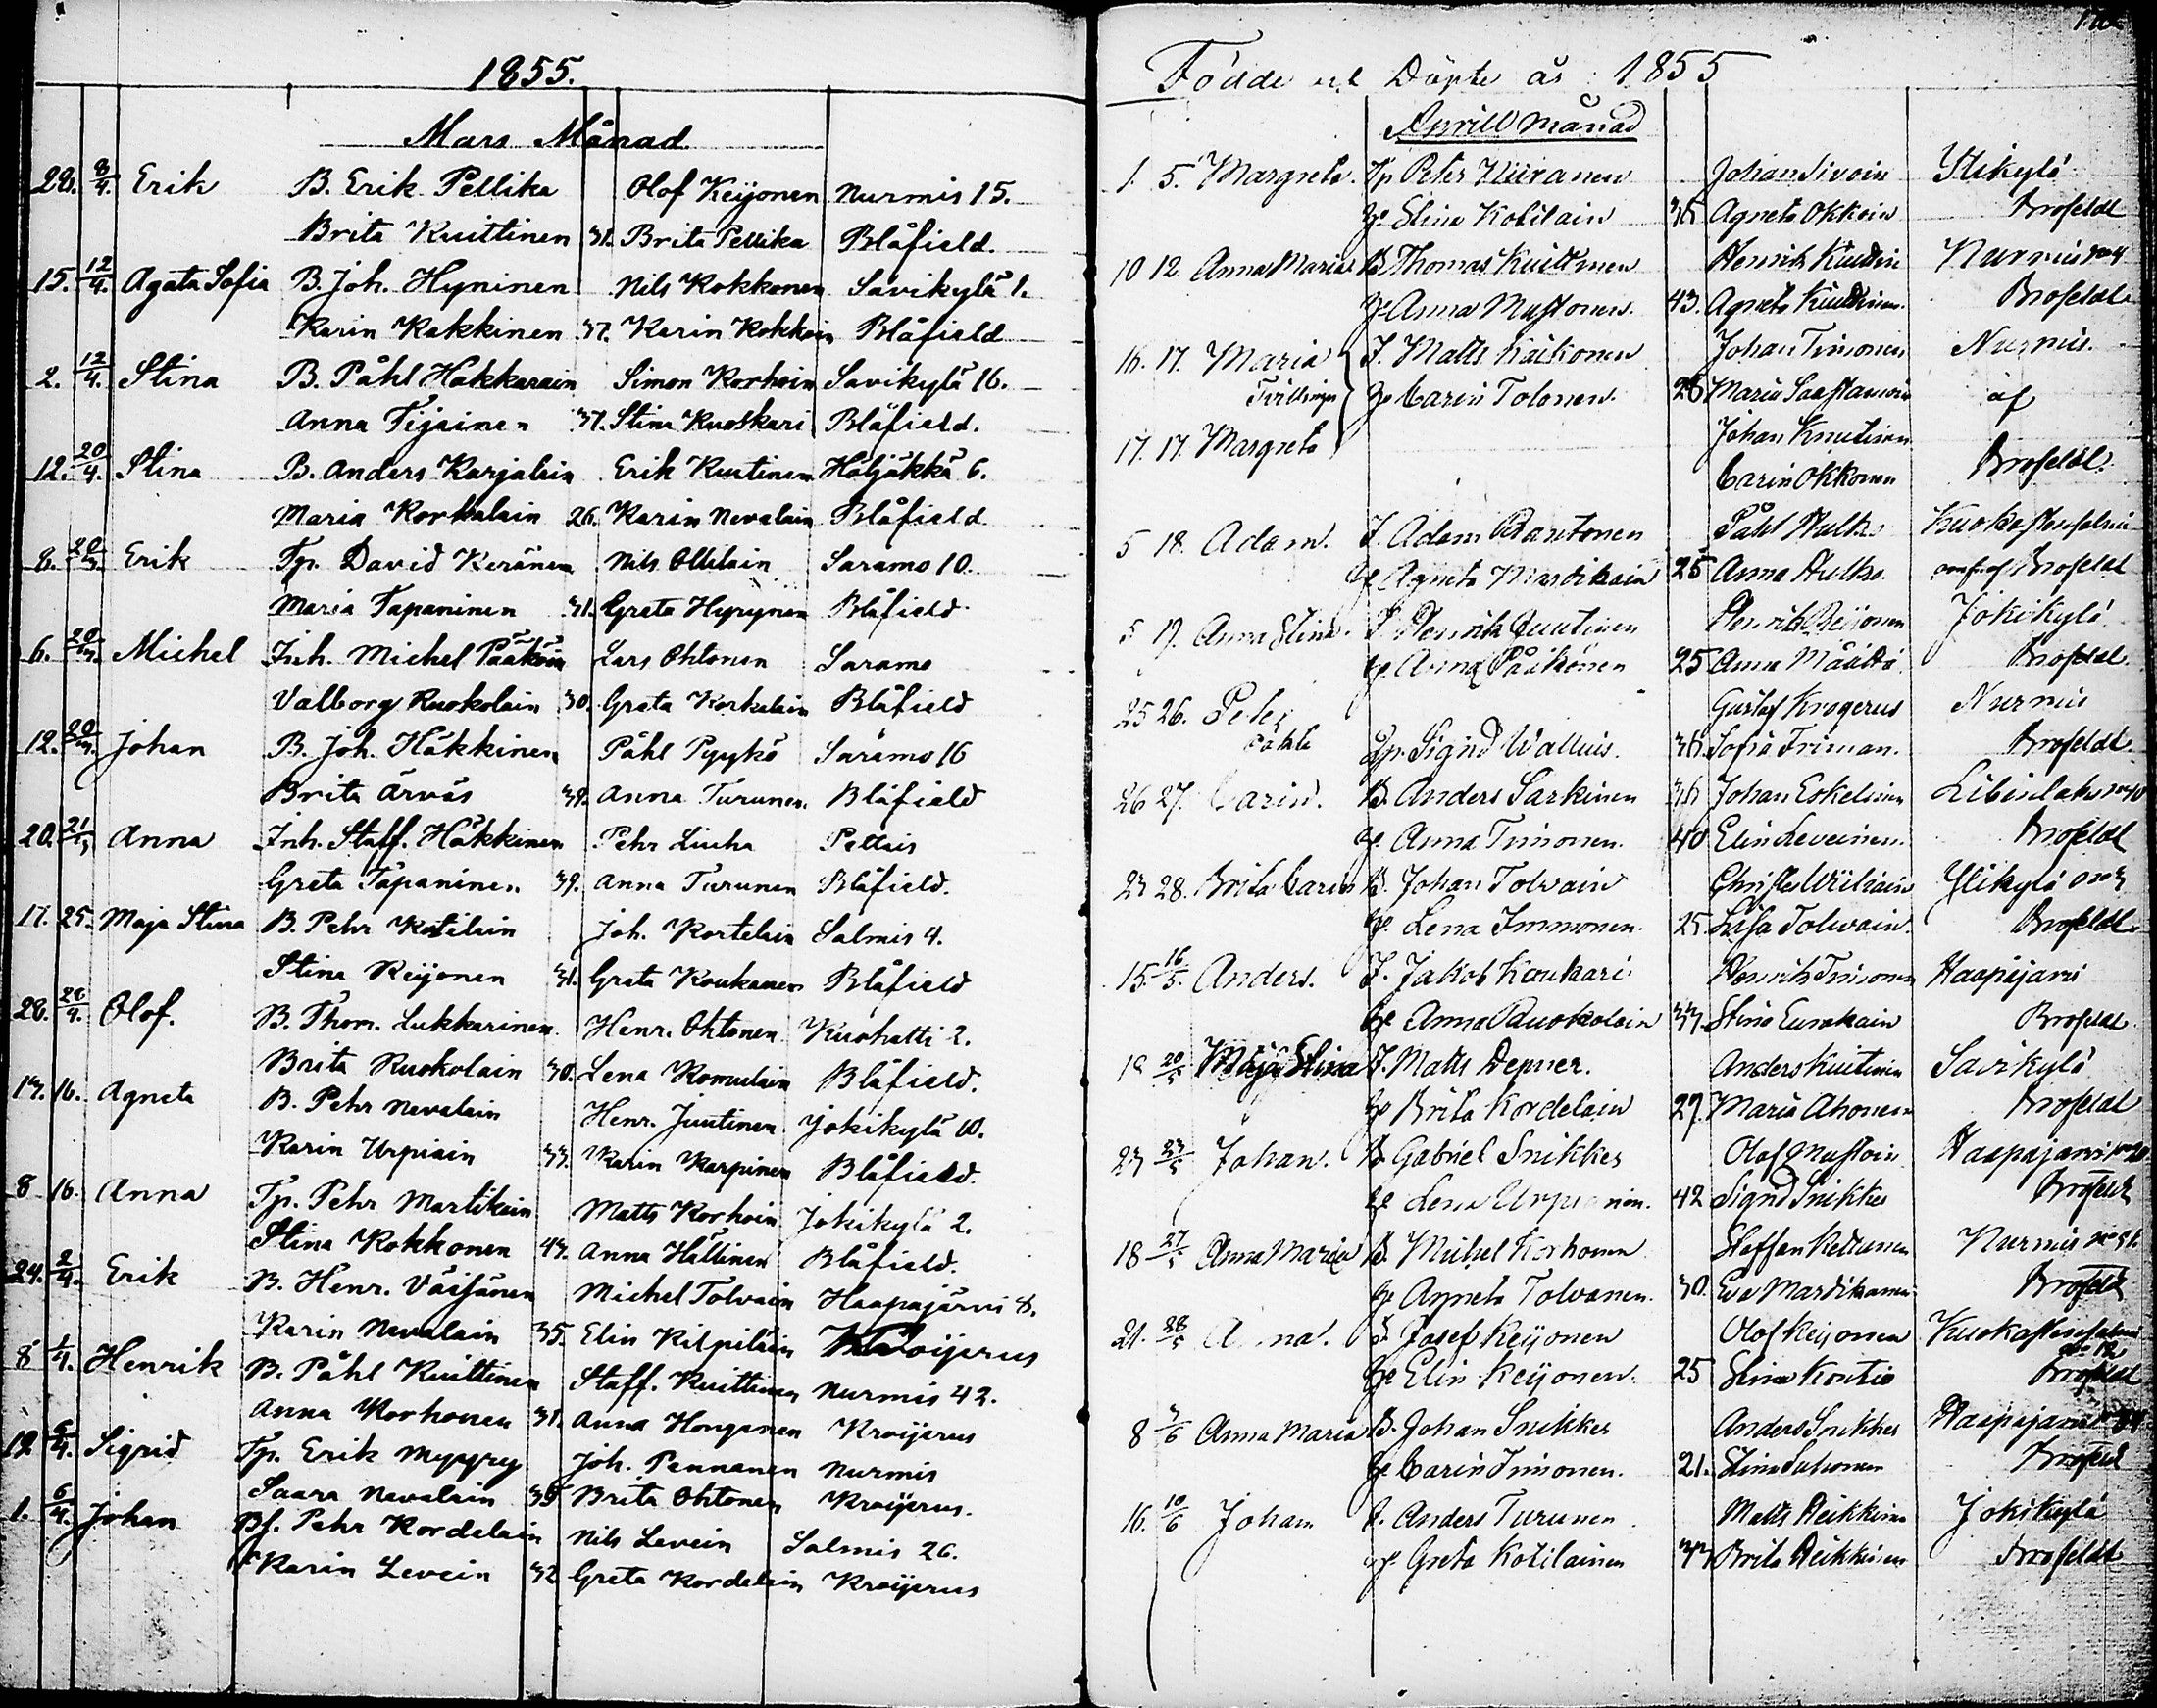 1855.
Mars Månad
28. 8/4. Erik B. Erik Pellika Olof Keijonen Nurmis 15.
Brita Kuittinen 31. Brita Pellika Blåfield.
15. 12/4. Agata Sofia B. Joh. Hyninen Nils Kokkonen Savikylä 1.
Karin Kakkinen 37. Karin Kokkoin Blåfield
2. 12/4. Stina B. Påhl Hakkarain Simon Korhoin Savikylä 16.
Anna Tijainen 37. Stina Kuoskari Blåfield.
12. 20/4. Stina B. Anders Karjalain Erik Kuitinen Höljäkkä 6.
Maria Korkalain 26. Karin Nevalain Blåfield
8. Erik Tp. David Keränen Nils Ollilain Saramo 10.
Maria Tapaninen 31. Greta Hyrynen Blåfield.
6. Michel Inh. Michel Pääköin Lars Ohtonen Saramo
Valborg Ruokolain 30. Greta Korkalain Blåfield
12. Johan B. Joh. Häkkinen Påhl Pyykö Saramo 16
Brita Ärväs 39. Anna Turunen. Blåfield
20. Anna Inh. Staff. Häkkinen Pehr Liuha Pettais
Greta Tapaninen 39. Anna Turunen Blåfield.
17. 25. Maja Stina B. Pehr Kotilain Joh. Kortelain Salmis 4.
Stina Keijonen 31. Greta Koukanen Blåfield
28. 28/4. Olof. B. Thom. Lukkarinen. Henr. Ohtonen Kuohatti 2.
Brita Ruokolain 30. Lena Romulain Blåfield.
13. 16. Agneta B. Pehr Nevalain Henr. Juutinen Jokikylä 10.
Karin Urpiain 33. Karin Karpinen Blåfield.
8 16. Anna Tp. Pehr Martikain Matts Korhoin Jokikylä 2.
Stina Kokkonen 43. Anna Hältinen Blåfield.
24. 2/4. Erik B. Henr. Väisänen Michel Tolvain Haapajärvi 8.
Karin Nevalain 35. Elin Kilpiläin Kroijerus
8 1/4. Henrik B. Påhl Kuittinen Staff. Kuittinen Nurmis 42.
Anna Korhonen 31. Anna Honganen Kroijerus
19 6/4. Sigrid Tp. Erik Myyry Joh. Pennanen Nurmis
Saara Nevalain 35 Brita Ohtonen Kroijerus.
1. 6/4. Johan Bf. Pehr Kordelain Nils Levein Salmis 26.
Karin Levein 32 Greta Kordelain Kroijerus
Födde och Döpte år 1855
Aprill månad
1. 5. Margreta. Tp Peter Kiiranen Johan Sivoin Ylikylä
ho Stina Kotilain 36 Agneta Okkoin Brofeldt
10 12. Anna Maria B. Thomas Kuittinen Henrik Kuittin Nurmis
ho Anna Mustonen. 43. Agneta Kuittinen Brofeldt
16. 17. Maria I. Matts Kaikonen Johan Timonen Nurmis.
Tvillingar ho Carin Tolonen. 28 Maria Saastamoin af
17. 17. Margreta Johan Knutinen
Carin Okkonen Brofeldt
5 18. Adam. I. Adam Rantonen Påhl Hulko
ho Agneta Martikain 25 Anna Hulko. Brofeldt
5 19. Anna Stina. I. Henrik Juutinen Henrik Reijonen Jokikylä
ho Anna Pääkönen 25 Anna Määttä Brofeldt.
25 26. Peter Gustaf Krogerus Nurmis
oäkta Sigrid Wallius. 36 Sofia Friman. Brofeldt.
26 27. Carin. B. Anders Sarkinen 36 Johan Eskelinen
ho Anna Timonen. 40 Elin Leveinen. Brofeldt
23 28. Brita Carin B. Johan Tolvain Ylikylä
ho Lena Immonen. 25. Lisa Tolvain. Brofeldt.
15. 16/5. Anders. I. Jakob Koukari Henrik Timonen Haapajärvi
ho Anna Ruokolain 33. Stina Brofeldt
18 20/5 Maja Stina I. Matts Depner. Anders Kuitinen Savikylä
ho Brita Kordelain 27. Maria Ahonen Brofeldt
23 23/5 Johan. B. Gabriel Snikker Olof Mustoin Haapajärvi
ho Lena 42 Sigrid Snikker Brofeldt
18 27/5 Anna Maria B. Michel Korhonen Staffan Kettunen Nurmis
ho Agneta Tolvanen. 30. Eva Martikainen Brofeldt
21. 28/5 Anna. I. Josef Keijonen Olof Keijonen
ho Elin Keijonen. 25 Stina Kontio Brofeldt
8 3/6 Anna Maria B. Johan Snikker Anders Snikker Haapajärvi
ho Carin Timonen. 21. Stina Brofeldt
16. 10/6 Johan I. Anders Turunen Matts Heikkinen Jokikylä
ho Greta Kotilainen 33 Brita Heikkinen Brofeldt